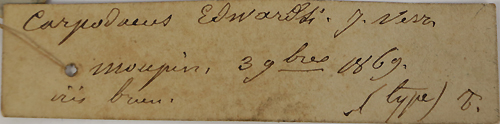 Carpodacus Edwardsi. J. Verr.
moupin. 3 9bres 1869.
iris brun. (type) ♂.